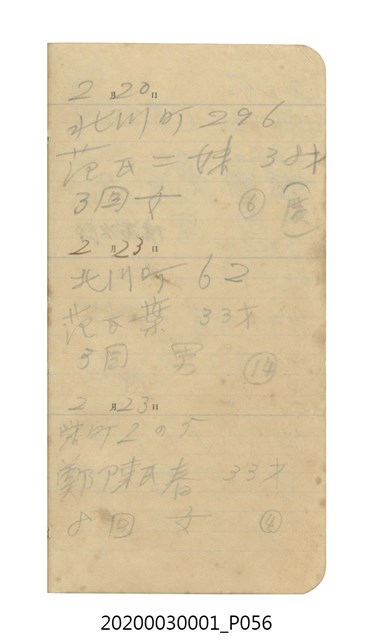 2月20日
北川町 296
范氏二妹 38才
3回女 ⑥ (慶)
2月23日
北川町 62
范氏葉 33才
5回 男 ⑭
2月23日
町2の5
鄭陳氏春 33才
8回 女 ④
20200030001_P056